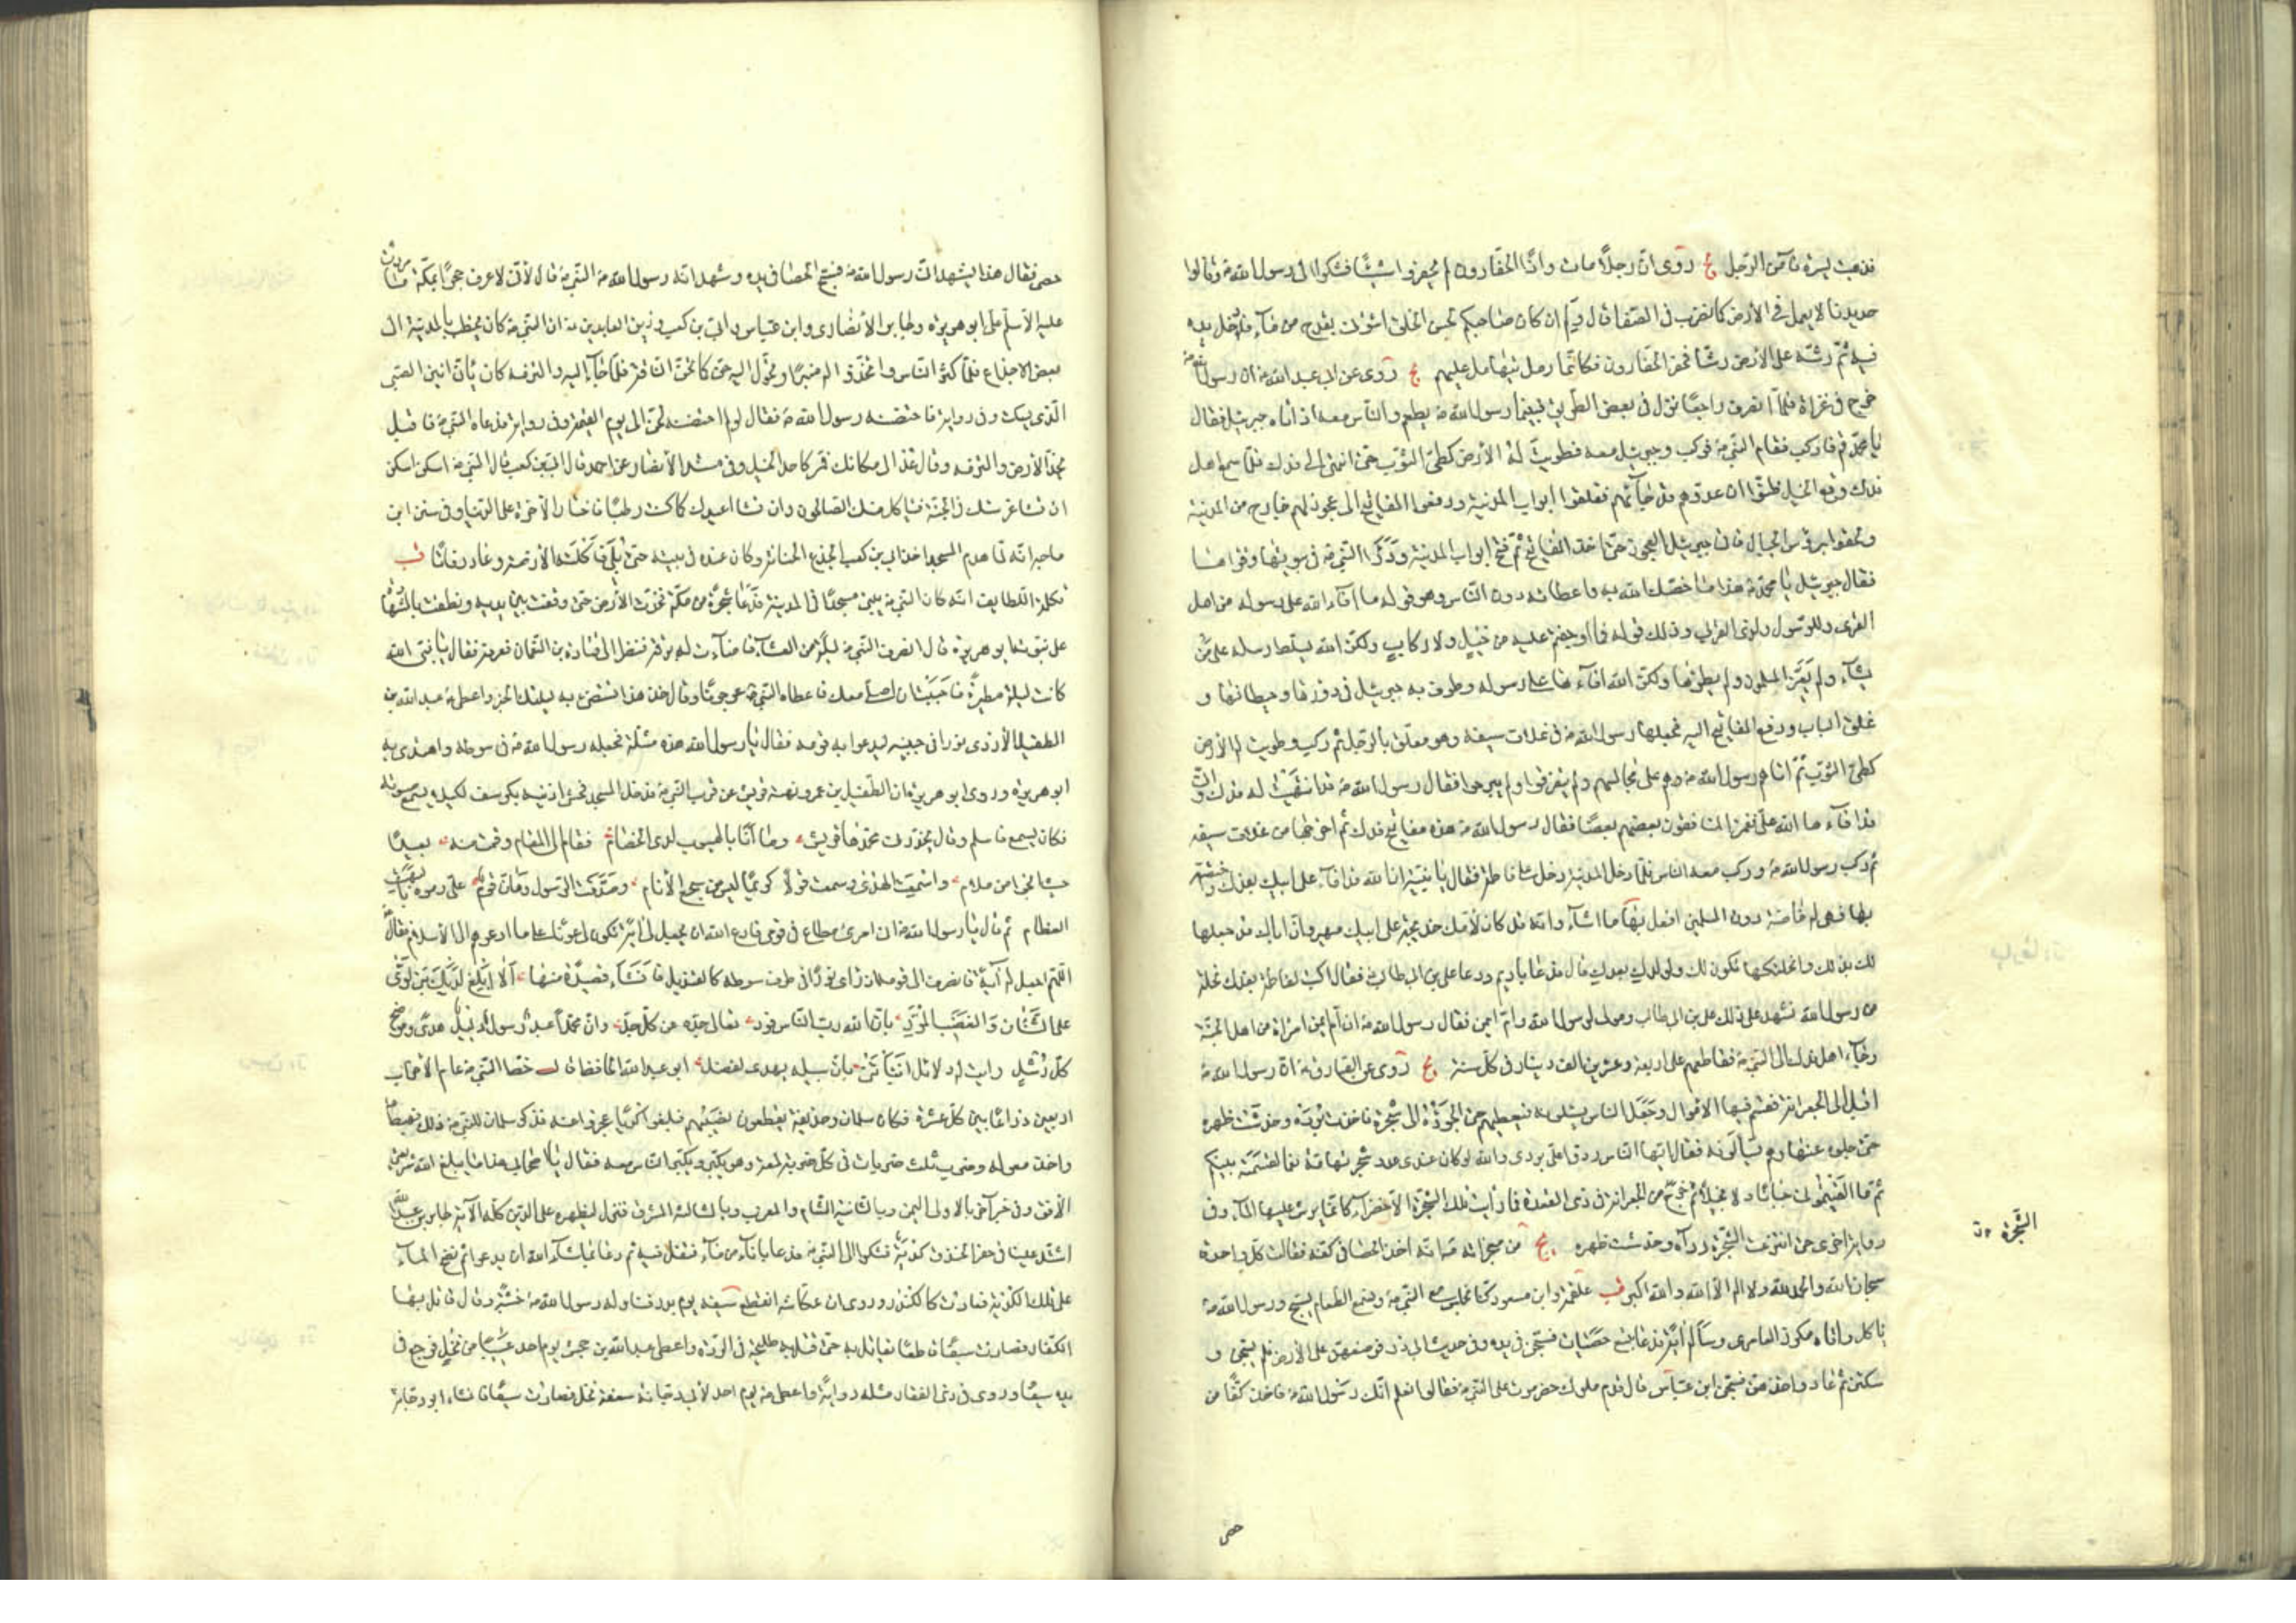 فذهبت ليسره فآمن الرجل يج روى ان رجلاً مات واذا الحفارون لم يحفروا شيئاً فشكوا الى رسول الله ص وقالوا
حديدنا لا يعمل في الأرض كما نضرب في الصفا قال ولم ان كان صاحبكم لحسن الخلق ائتونى بقدح من ماء فادخل يده
فيه ثم رشه على الأرض رشاً فحفر الحفارون فكانما رمل يتهامل عليهم يج روى عن ابى عبد الله ع ان رسول الله ص
خرج في غزاة فلما انصرف راجعاً نزل في بعض الطريق فبينما رسول الله ص يطعم والناس معه اذ اتاه جبرئيل فقال
يا محمد قم فاركب فقام النبي ص فركب وجبرئيل معه فطويت له الأرض كطى الثوب حتى انتهى الى فدك فلما سمع اهل
فدك وقع الخيل ظنوا ان عدوهم قد جائهم فغلقوا ابواب المدينة ودفعوا المفاتيح الى عجوز لهم خارج من المدينة
ولحقوا برؤس الجبال فاتى جبرئيل العجوز حتى اخذ المفاتيح ثم فتح ابواب المدينة ودار النبي ص في بيوتها وقراها
فقال جبرئيل يا محمد هذا ما خصك الله به واعطاكه دون الناس وهو قوله ما افاء الله على رسوله من اهل
القرى فلله وللرسول ولذى القربى وذلك قوله فما اوجفتم عليه من خيل ولا ركاب ولكن الله يسلط رسله على من
يشاء ولم يغز المسلمون ولم يطؤها ولكن الله افاءها على رسوله وطوف به جبرئيل في دورها وحيطانها و
غلق الباب ودفع المفاتيح اليه فجعلها رسول الله ص في غلاف سيفه وهو معلق بالرحل ثم ركب وطويت له الأرض
كطى الثوب ثم اتاهم رسول الله ص وهم على مجالسهم ولم يتفرقوا ولم يبرحوا فقال رسول الله ص قد انتهيت الى فدك وانى
قد افاءها الله على فغمز المنافقون بعضهم بعضاً فقال رسول الله ص هذه مفاتيح فدك ثم اخرجها من غلاف سيفه
ثم ركب رسول الله ص وركب معه الناس فلما دخل المدينة دخل على فاطمة فقال يا بنية ان الله قد افاء على ابيك بفدك واختصه
بها فهى له خاصة دون المسلمين افعل بها ما اشاء وانه قد كان لأمك خديجة على ابيك مهر وان اباك قد جعلها
لك بذلك وانحلتكها تكون لك ولولدك بعدك قال فدعا باديم ودعا على بن ابى طالب فقال اكتب لفاطمة بفدك نحلة
من رسول الله فشهد على ذلك على بن ابى طالب ومولى لرسول الله وام ايمن فقال رسول الله ص ان ام ايمن امراة من اهل الجنة
وجاء اهل فدك الى النبي ص فقاطعهم على اربعة وعشرين الف دينار في كل سنة يج روى عن الصادق ع ان رسول الله ص
اقبل الى الجعرانة فقسم فيها الاموال وجعل الناس يسئلونه فيعطيهم حتى الجؤه الى شجرة فاخذت برده وخدشت ظهره
حتى جلوه عنها وهم يسألونه فقال ايها الناس ردوا على بردى والله لو كان عندى عدد شجر تهامة نعما لقسمته بينكم
ثم ما الفيتمونى جباناً ولا بخيلاً ثم خرج من الجعرانة في ذى القعدة قال فما رأيت تلك الشجرة الا خضراء كانما يرش عليها الماء وفي
رواية اخرى حتى انتزعت الشجرة رداه وخدشت ظهره يج من معجزاته ص انه اخذ الحصا في كفه فقالت كل واحدة
سبحان الله والحمد لله ولا اله الا الله والله اكبر قب علقمة وابن مسعود كنا نجلس مع النبي ص ونسمع الطعام يسبح ورسول الله ص
ياكل واتاه مكرز العامرى وساله آية فدعا بتسع حصيات فسبحن في يده وفي حديث ابى ذر فوضعهن على الأرض فلم يسبحن و
سكتن ثم عاد واخذهن فسبحن ابن عباس قال قدم ملوك حضرموت على النبي ص فقالوا كيف نعلم انك رسول الله ص فاخذ كفا من
الشجرة ق
حصى
حصى فقال هذا يشهد انى رسول الله ص فسبح الحصا في يده وشهد انه رسول الله ص النبي ص قال لأنى لاعرف حجراً بمكة ما مررت
عليه الا سلم على ابو هريرة وجابر الأنصارى وابن عباس وابى بن كعب وزين العابدين ع ان النبي ص كان يخطب بالمدينة الى
بعض الاجذاع فلما كثر الناس واتخذوا له منبراً وتحول اليه حن كما تحن الناقة فلما جاء اليه والتزمه كان يأن انين الصبى
الذى يسكت وفي رواية فاحتضنه رسول الله ص فقال لو لم احتضنه لحن الى يوم القيمة وفي رواية فدعاه النبي ص فاقبل
يخد الأرض والتزمه وقال عد الى مكانك فمر كاحد الخيل وفي مسند الأنصار عن احمد قال ابى بن كعب قال النبي ص اسكن اسكن
ان تشا غرستك في الجنة فياكل منك الصالحون وان تشا اعيدك كما كنت رطباً فاختار الآخرة على الدنيا وفي سنن ابن
ماجه انه لما هدم المسجد اخذ ابى بن كعب الجذع الحنانة وكان عنده في بيته حتى بلى فاكلته الأرضة وعاد رفاتاً قب
تكملة اللطايف انه كان النبي ص يبنى مسجداً في المدينة فدعا شجرة من مكة فخدت الأرض حتى وقفت بين يديه ونطقت بالشهادة
على نبوته ابو هريرة قال انصرف النبي ص ليلة من العشاء فاضاءت له برقة فنظر الى قتادة بن النعمان فعرفه فقال يا نبى الله
كانت ليلة مطيرة فاحببت ان اصلى معك فاعطاه النبي ص عرجوناً وقال خذ هذا تستضئ به ليلتك الخبر واعطى ص عبد الله بن
الطفيل الأزدى نوراً في جبينه ليدعوا به قومه فقال يا رسول الله هذه مثلة فجعله رسول الله ص في سوطه واهتدى به
ابو هريرة وروى ابو هريرة ان الطفيل بن عمرو نهته قريش عن قرب النبي ص فدخل المسجد فحشى اذنيه بكرسف لكيلا يسمع صوته
فكان يسمع فاسلم وقال يحذرنى محمدها قريش وما انا بالهيوب لدى الخصام فقام الى المقام وقمت منه بعيداً
حيث انجو من ملام واسمعت الهدى وسمعت قولاً كريماً ليس من سجع الأنام وصدقت الرسول وهان قوم على رموه بالبهت
العظام ثم قال يا رسول الله ص انى امرئ مطاع في قومى فادع الله ان يجعل لى آية تكون لى عوناً على ما ادعوهم الى الأسلام فقال ص
اللهم اجعل له آية فانصرف الى قومه اذ راى نوراً في طرف سوطه كالقنديل فانشا قصيدة منها الا ابلغ لديك بنى لؤى
على الشنان والغضب المرد بان الله رب الناس فرد تعالى جده عن كل جد وان محمداً عبد رسول دليل هدى وموضح
كل رشد رايت له دلائل انباتنى بان سبيله يهدى لفضله ابو عبد الله الحافظ قال خط النبي ص عام الأحزاب
اربعين ذراعاً بين كل عشرة فكان سلمان وحذيفة يقطعون نصيبهم فبلغوا كدياً عجزوا عنه فذكر سلمان للنبي ص ذلك فهبط ص
واخذ معوله وضرب ثلث ضربات في كل ضربة لمعة وهو يكبر ويكبر الناس معه فقال يا اصحابى هذا ما يبلغ الله شريعتى
الأفق وفي خبر آخر بالاولى اليمن وبالثانية الشام والمغرب وبالثالثة المشرق فنزل ليظهره على الدين كله الآية جابر بن عبد الله
اشتد علينا في حفر الخندق كدية فشكوا الى النبي ص فدعا باناء من ماء فتفل فيه ثم دعا بما شاء الله ان يدعو ثم نضح الماء
على تلك الكدية فعادت كالكندر وروى ان عكاشة انقطع سيفه يوم بدر فناوله رسول الله ص خشبة وقال قاتل بها
الكفار فصارت سيفاً قاطعاً يقاتل به حتى قتل به طليحة في الردة واعطى عبد الله بن جحش يوم احد عسيباً من نخل فرجع في
يده سيفاً وروى في ذى الفقار مثله رواية واعطى ص يوم احد لأبى دجانة سعفة نخل فصارت سيفاً فانشا ابو دجانة